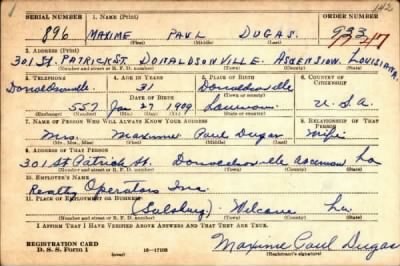 142
SERIAL NUMBER 1. NAME (Print) ORDER NUMBER
896 MAXIME PAUL DUGAS 933
(First) (Middle) (Last)
2. ADDRESS (Print)
301 ST. PATRICK ST. DONALDSONVILLE. ASCENSION. LOUISIANA.
(Number and street or R. F. D. number) (Town) (County) (State)
3. TELEPHONE 4. AGE IN YEARS 5. PLACE OF BIRTH 6. COUNTRY OF CITIZENSHIP
Donaldsonville 31 Donaldsonville
DATE OF BIRTH
557 Jan 27 1909 Louisiana U.S.A.
(Exchange) (Number) (Mo.) (Day) (Yr.) (State or country)
7. NAME OF PERSON WHO WILL ALWAYS KNOW YOUR ADDRESS 8. RELATIONSHIP OF THAT PERSON
Mrs. Maxime Paul Dugas Wife
(Mr., Mrs., Miss) (First) (Middle) (Last)
9. ADDRESS OF THAT PERSON
301 St Patrick St. Donaldsonville Ascension La
(Number and street or R. F. D. number) (Town) (County) (State)
10. EMPLOYER'S NAME
Realty Operators Inc.
11. PLACE OF EMPLOYMENT OR BUSINESS
(Salsburg) Welcome La.
(Number and street or R. F. D. number) (Town) (County) (State)
I AFFIRM THAT I HAVE VERIFIED ABOVE ANSWERS AND THAT THEY ARE TRUE.
REGISTRATION CARD
D. S. S. Form 1 16—17105 Maxime Paul Dugas
(Registrant's signature)